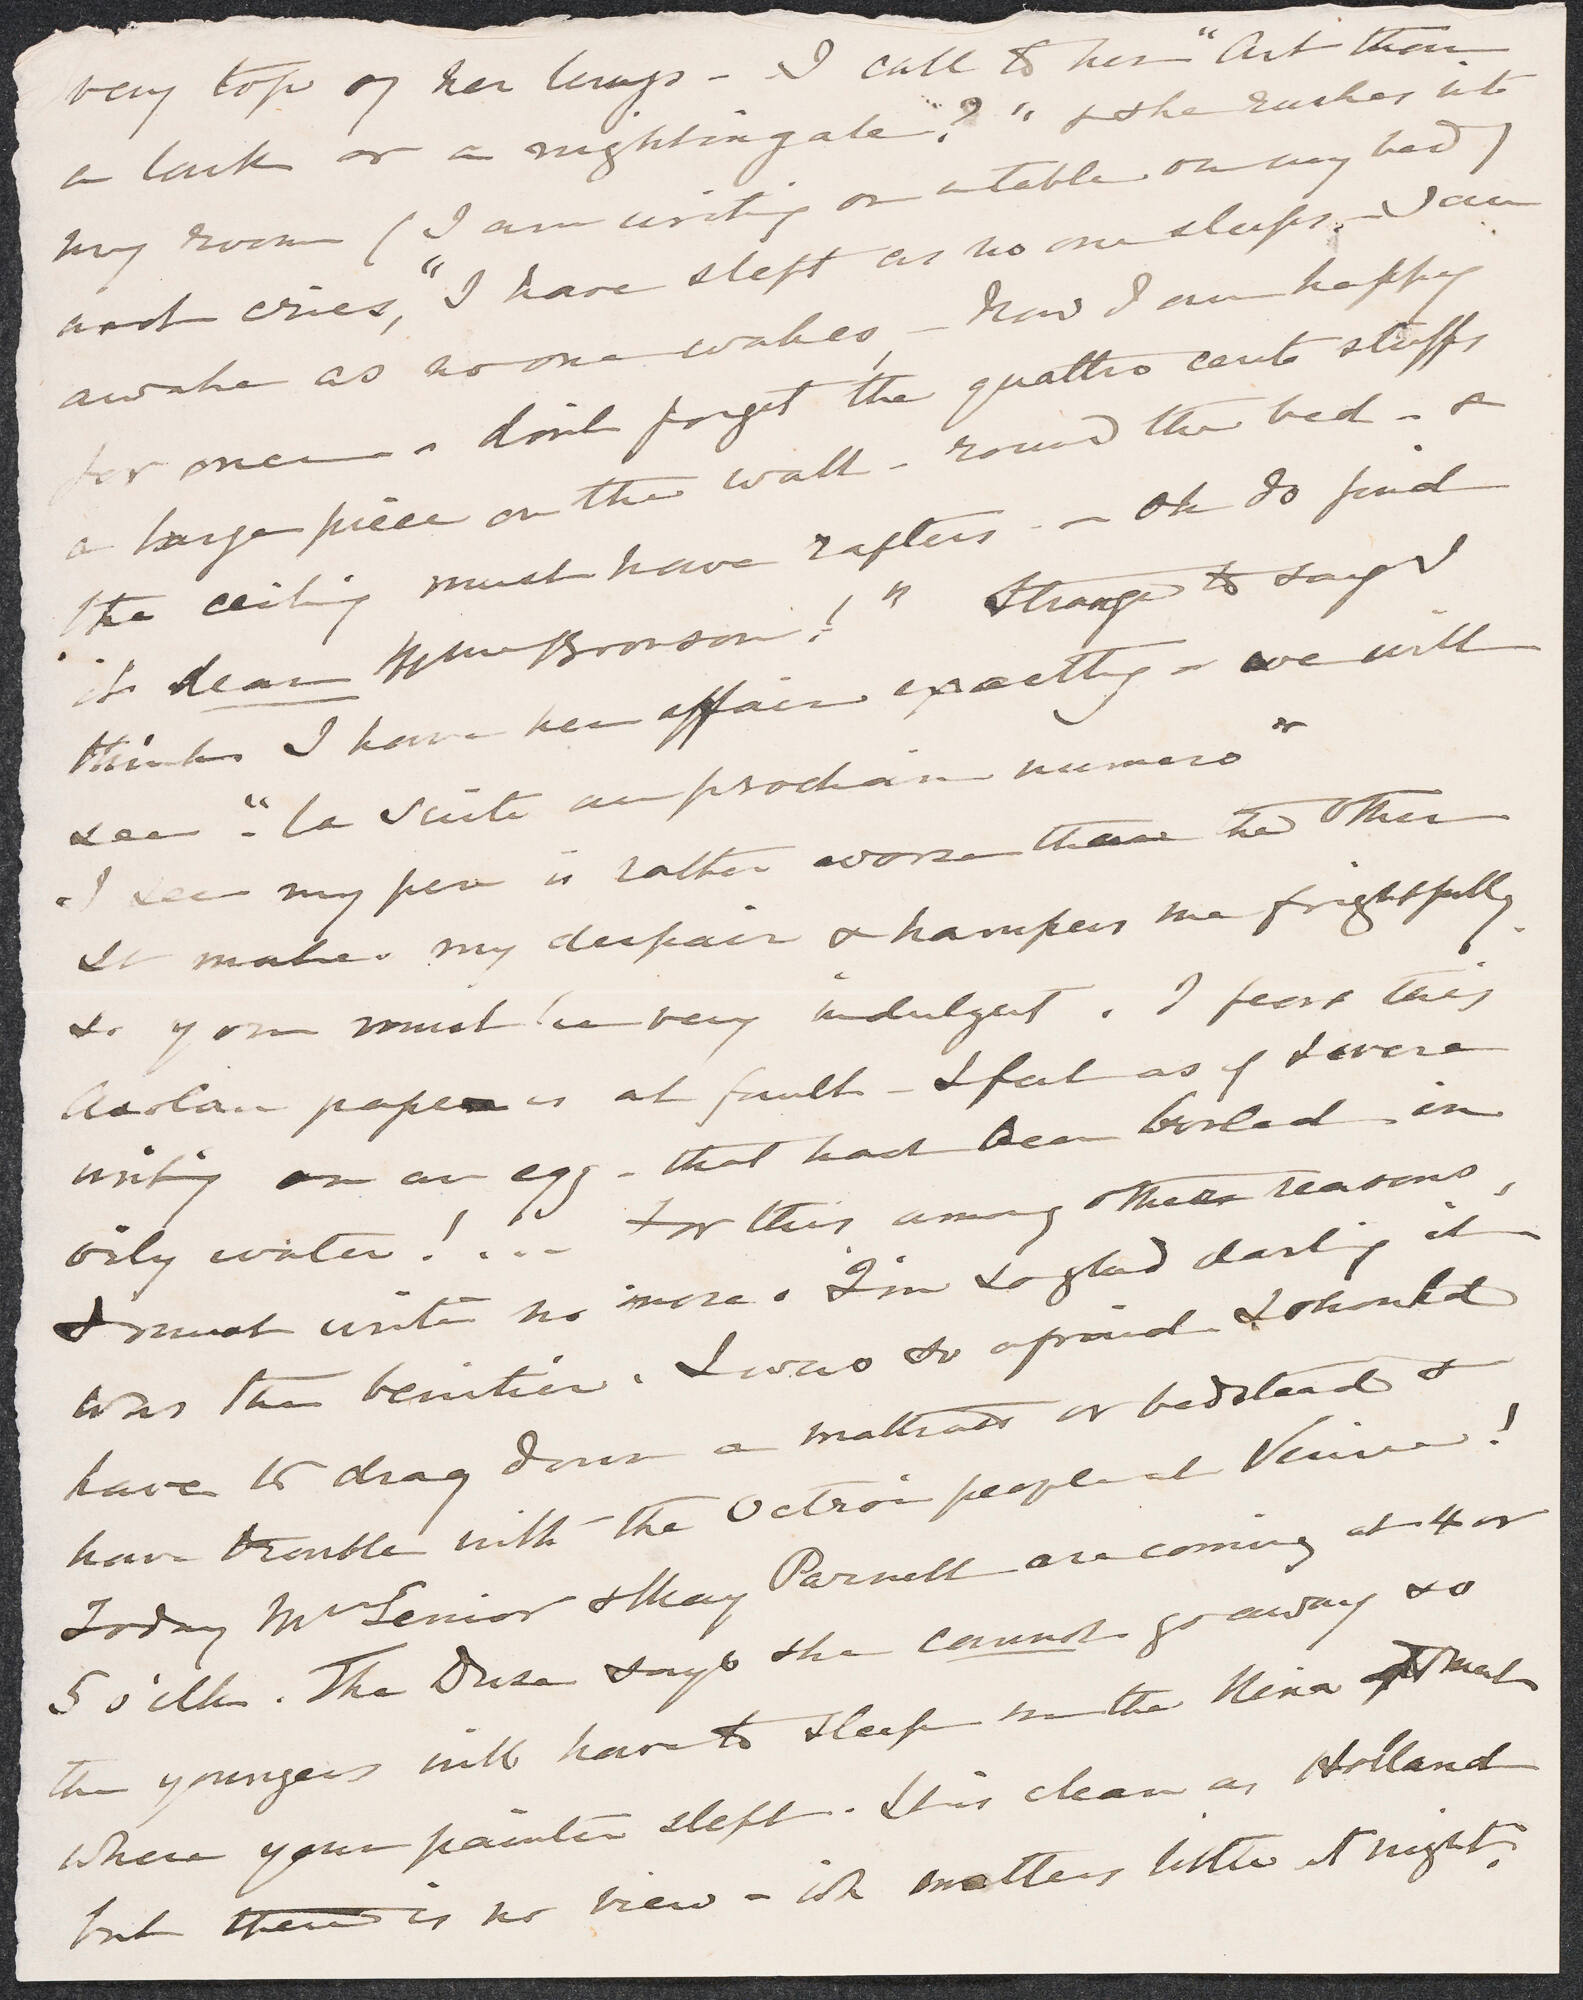 very top of her lungs - I call to her "Art thou
a lark or a nightingale?" & she rushes into
my room (I am writing on a table on my bed)
and cries, "I have slept as no one sleeps. - I am
awake as no one wakes, - now I am happy
for once - don't forget the quattro cento stuffs
a large piece on the wall - round the bed - &
the ceiling must have rafters - - oh do find
it dear Mme Bronson!" Strange to say I
think I have her affair exactly - we will
see - "la suite au prochain numero"
I see my pen is rather worse than the other
It makes my despair & hampers me frightfully.
So you must be very indulgent. I fear this
Asolan paper is at fault - I feel as if I were
writing on an egg - that had been boiled in
oily water! ... For this among other reasons,
I must write no more. I'm so glad darling it
was the benitier. I was so afraid I should
have to drag down a mattrass or bedstead &
have trouble with the Octroi people at Venice!
Today Mrs Senior & May Parnell are coming at 4 or
5 o'clk. The Duse says she cannot go away so
the youngers will have to sleep in the Nina
where your painter slept. It is clean as Holland
but there is no view - wh matters little at night.